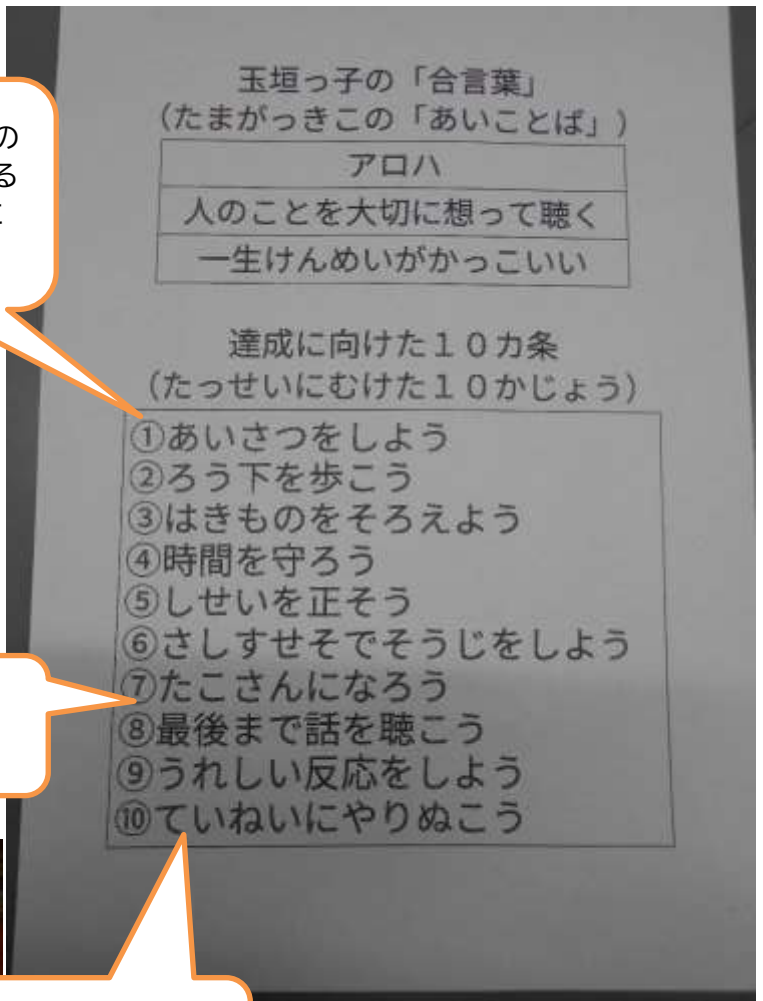 玉垣っ子の「合言葉」
(たまがっきこの「あいことば」)
アロハ
人のことを大切に想って聴く
一生けんめいがかっこいい
達成に向けた10カ条
(たっせいにむけた10かじょう)
①あいさつをしよう
②ろう下を歩こう
③はきものをそろえよう
④時間を守ろう
⑤しせいを正そう
⑥さしすせそでそうじをしよう
⑦たこさんになろう
⑧最後まで話を聴こう
⑨うれしい反応をしよう
⑩ていねいにやりぬこう
の
る